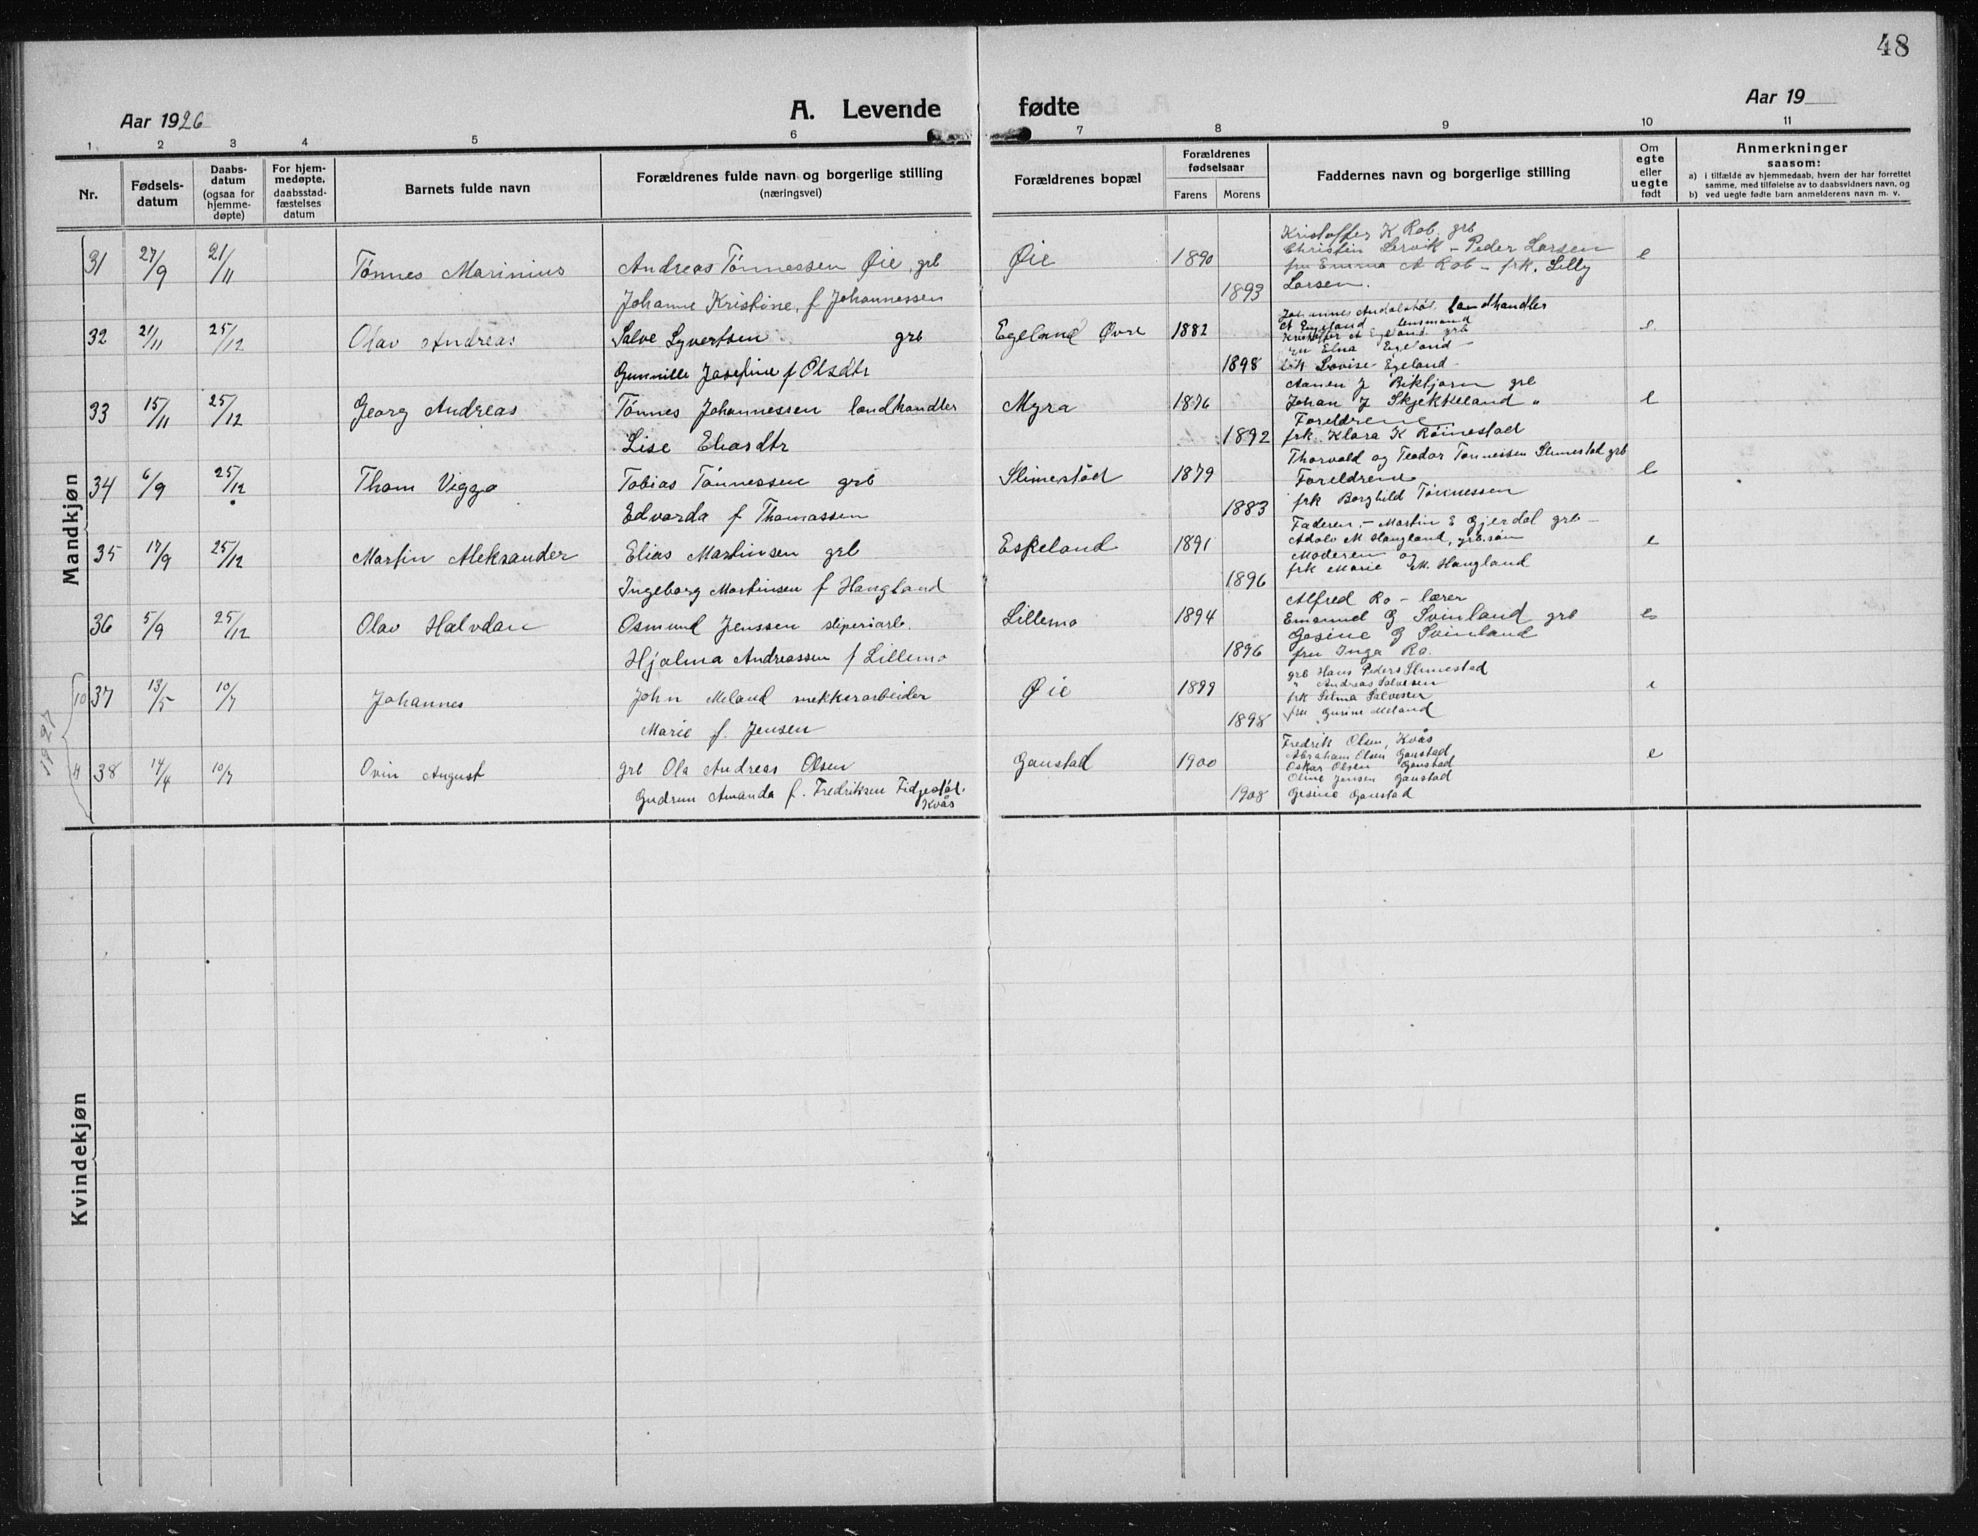 48
Aar 1926
A. Levende fødte
Aar 19
1 2 3 4 5 6 7 8 9 10 11
Nr.
Fødsels-
datum
Daabs-
datum
(ogsaa for
hjemme-
døpte)
For hjem-
medøpte.
daabsstad-
fæstelses
datum
Barnets fulde navn
Forældrenes fulde navn og borgerlige stilling
(næringsvei)
Forældrenes bopæl
Forældrenes
fødselsaar
Farens Morens
Faddernes navn og borgerlige stilling
Om
egte
eller
uegte
født
Anmerkninger
saasom:
a) i tilfælde av hjemmedaab, hvem der har forrettet
samme, med tilføielse av to daabsvidners navn, og
b) ved uegte fødte barn anmelderens navn m. v.
Mandkjøn
31 27/9 21/11 Tønnes Marinius Andreas Tønnessen Øie, grb Øie 1890 e
Johanne Kristine, f Johannessen 1893
Kristoffer K Rob. grb
Christin Lervik - Peder Larsen
fru Emma A Rob - frk. Lilly
Larsen.
32 21/11 25/12 Olav Andreas Salve Syvertsen grb Egeland Øvre 1882 e
Gunnille Josefine f Olsdtr 1898
landhandler
A Egeland lensmand
Kristoffer A Egeland grb
Elna Egeland
Lovise Egeland
33 15/11 25/12 Georg Andreas Tønnes Johannessen landhandler Myra 1876 e
Lise Eliasdtr 1892
Aanen J Birkjorn grb
Johan J Skjekkeland "
Foreldrene
frk Klara K Røinestad
34 6/9 25/12 Thom Viggo Tobias Tønnessen grb Slimestad 1879 e
Edvarda f Thomassen 1883
Thorvald og Teodor Tønnessen Slimestad grb
Foreldrene
frk Borghild Tønnessen
35 17/9 25/12 Martin Aleksander Elias Martinsen grb Eskeland 1891 e
Ingeborg Martinsen f Haugland 1896
Faderen, - Martin E Gjerdal grb -
Adolv M Haugland, grb.søn
Moderen og
frk Marie M. Haugland
36 5/9 25/12 Olav Halvdan Osmund Jenssen sliperiarb. Lillemo 1894 e
Hjalma Andreassen f Lillemo 1896
Alfred Ro - lærer
Emanuel G Svinland grb
Gesine G Svinland
fru Inga Ro.
1927
10 37 13/5 10/7 Johannes John Meland mekkerarbeider Øie 1899 e
Marie f. Jensen 1898
grb Hans Peders Slimestad
" Andreas Salvesen
frk Selma Salvesen
fru Gurine Meland
11 38 14/4 10/7 Ovin August grb Ola Andreas Olsen Gaustad 1900 e
Gudrun Amanda f. Fredriksen Fidjestøl. 1908
Kvås
Fredrik Olsen, Kvås
Abraham Olsen Gaustad
Oskar Olsen Gaustad
Oline Jensen Gaustad
Gesine Gaustad
Kvindekjøn